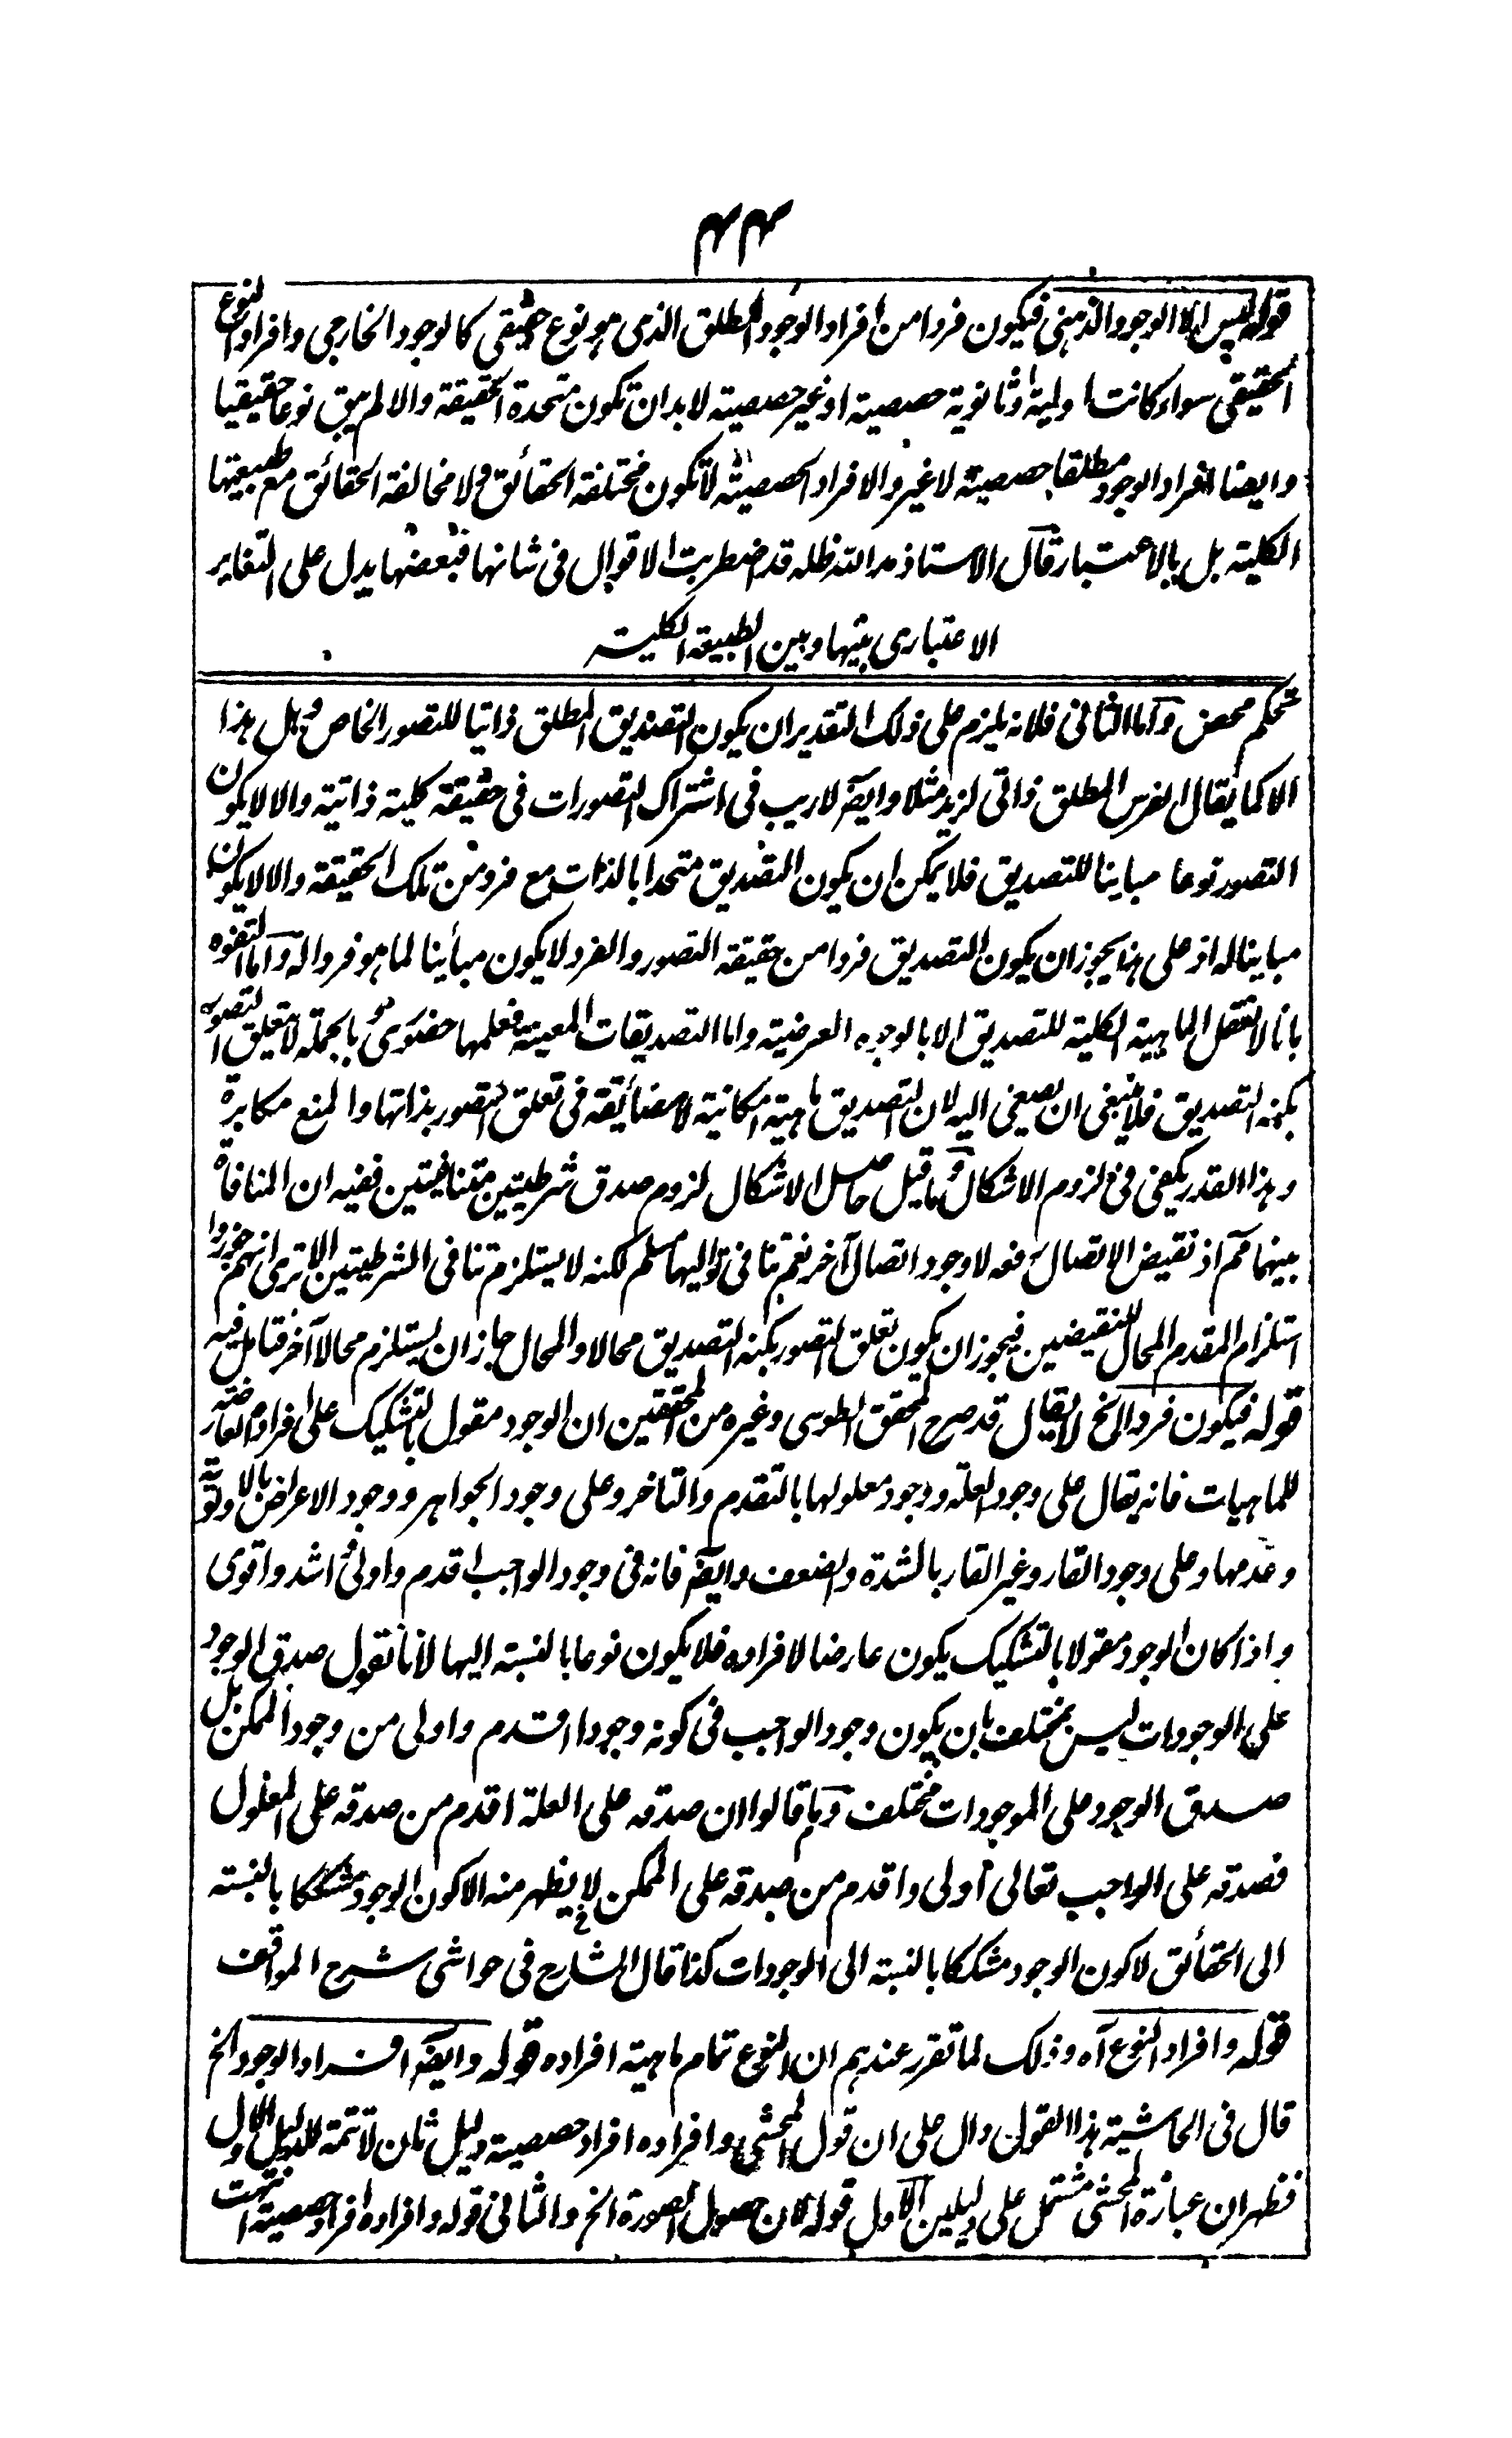 ۴۴
قوله ليس الا الوجود الذهنى فيكون فردا من افراد الوجود المطلق الذى هو نوع حقيقى كالوجود الخارجى وافراد النوع
الحقيقى سواء كانت اولية او ثانوية حصصية او غير حصصية لابد ان تكون متحدة الحقيقة والا لم يبق نوعا حقيقيا
وايضا افراد الوجود مطلقا حصصية لا غير والافراد الحصصية لا تكون مختلفة الحقائق ولا مخالفة الحقائق مع طبيعتها
الكلية بل بالاعتبار قال الاستاذ مد الله ظله قد اضطربت الاقوال فى شانها فبعضها يدل على التغاير
الاعتبارى بينها وبين الطبيعة الكلية
تحكم محض واما الثانى فلانه يلزم على ذلك التقدير ان يكون التصديق المطلق ذاتيا للتصور الخاص وهل هذا
الا كما يقال ان الفرس المطلق ذاتى لزيد مثلا وايضا لا ريب فى اشتراك التصورات فى حقيقة كلية ذاتية والا لا يكون
التصور نوعا مباينا للتصديق فلا يمكن ان يكون التصديق متحدا بالذات مع فرد من تلك الحقيقة والا لا يكون
مباينا له اذ على هذا يجوز ان يكون التصديق فردا من حقيقة التصور والفرد لا يكون مبائنا لما هو فرد له واما التفوه
بانا لا نتعقل الماهية الكلية للتصديق الا بالوجوه العرضية واما التصديقات المعينة فعلمها حضورى فبالجملة لا يتعلق التصور
بكنه التصديق فلا ينبغى ان يصغى اليه لان التصديق ماهية امكانية لا مضائقة فى تعلق التصور بذاتها والمنع مكابرة
وهذا القدر يكفى فى لزوم الاشكال وما قيل حاصل الاشكال لزوم صدق شرطيتين متنافيتين ففيه ان المنافاة
بينهما مم اذ نقيض الاتصال رفعه لا وجود اتصال آخر نعم تنافى تواليهما مسلم لكنه لا يستلزم تنافى الشرطيتين الا ترى انهم جوزوا
استلزام المقدم المحال للنقيضين فيجوز ان يكون تعلق التصور بكنه التصديق محالا والمحال جاز ان يستلزم محالا آخر فتامل فيه
قوله فيكون فردا الخ لا يقال قد صرح المحقق الطوسى وغيره من المحققين ان الوجود مقول بالتشكيك على افراده العارضة
للماهيات فانه يقال على وجود العلة ووجود معلولها بالتقدم والتاخر وعلى وجود الجواهر ووجود الاعراض بالاولوية
وعدمها وعلى وجود القار وغير القار بالشدة والضعف وايضا فانه فى وجود الواجب اقدم واولى واشد واقوى
واذا كان الوجود مقولا بالتشكيك يكون عارضا لافراده فلا يكون نوعا بالنسبة اليها لانا نقول صدق الوجود
على الوجودات ليس بمختلف بان يكون وجود الواجب فى كونه وجودا اقدم واولى من وجود الممكن بل
صدق الوجود على الموجودات مختلف وما قالوا ان صدقه على العلة اقدم من صدقه على المعلول
فصدقه على الواجب تعالى اولى واقدم من صدقه على الممكن لا يظهر منه الا كون الوجود مشككا بالنسبة
الى الحقائق لا كون الوجود مشككا بالنسبة الى الوجودات كذا قال الشارح فى حواشى شرح المواقف
قوله وافراد النوع آه وذلك لما تقرر عندهم ان النوع تمام ماهية افراده قوله وايضا افراد الوجود الخ
قال فى الحاشية هذا القول دال على ان قول المحشى وافراده افراد حصصية دليل ثان لا تتمة للدليل الاول
فظهر ان عبارة المحشى مشتمل على دليلين الاول قوله لان حصول الصورة الخ والثانى قوله وافراده افراد حصصية انتهت